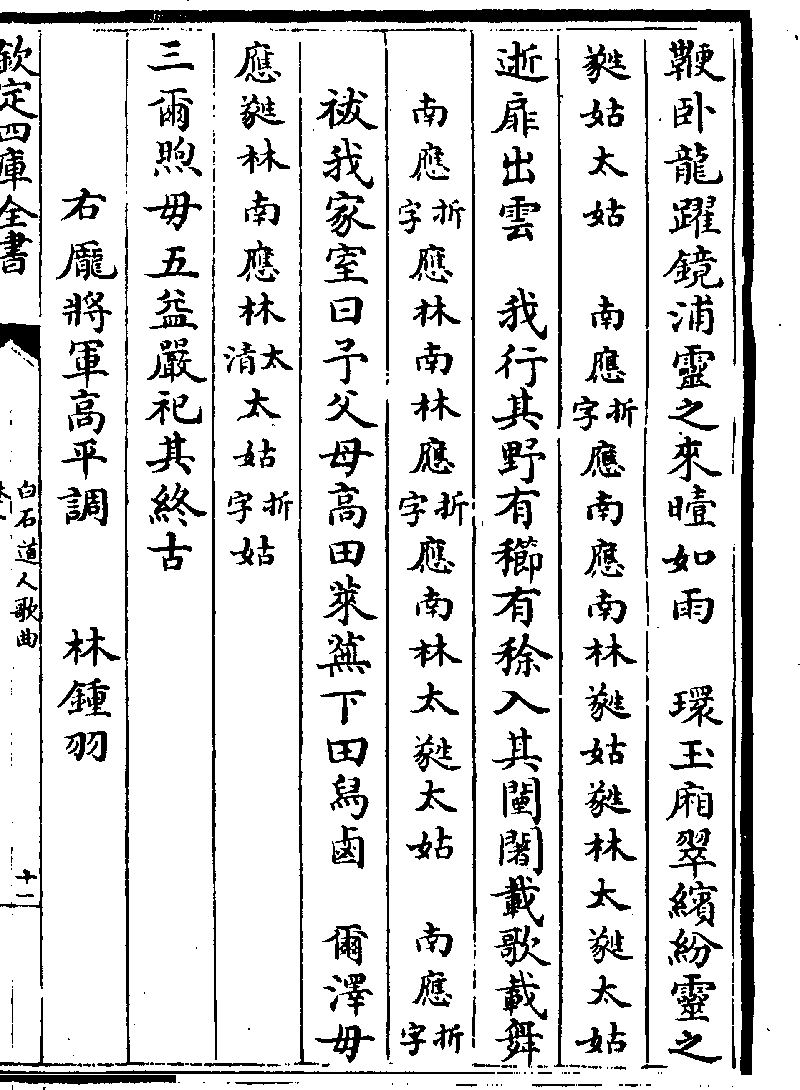 鞭卧龍躍鏡浦靈之來曀如雨　環玉廂翠繽紛靈之
蕤姑太姑　南應折字應南應南林蕤姑蕤林太蕤太姑
逝扉出雲　我行其野有櫛有稌入其闉闍載歌載舞
南應折字應林南林應折字應南林太蕤太姑　南應折字
祓我家室曰予父母高田萊蕪下田舄鹵　爾澤毋
應蕤林南應林太清太姑折字姑
三爾煦毋五益嚴祀其終古
右龐將軍高平調　林鍾羽
欽定四庫全書
白石道人歌曲
十一